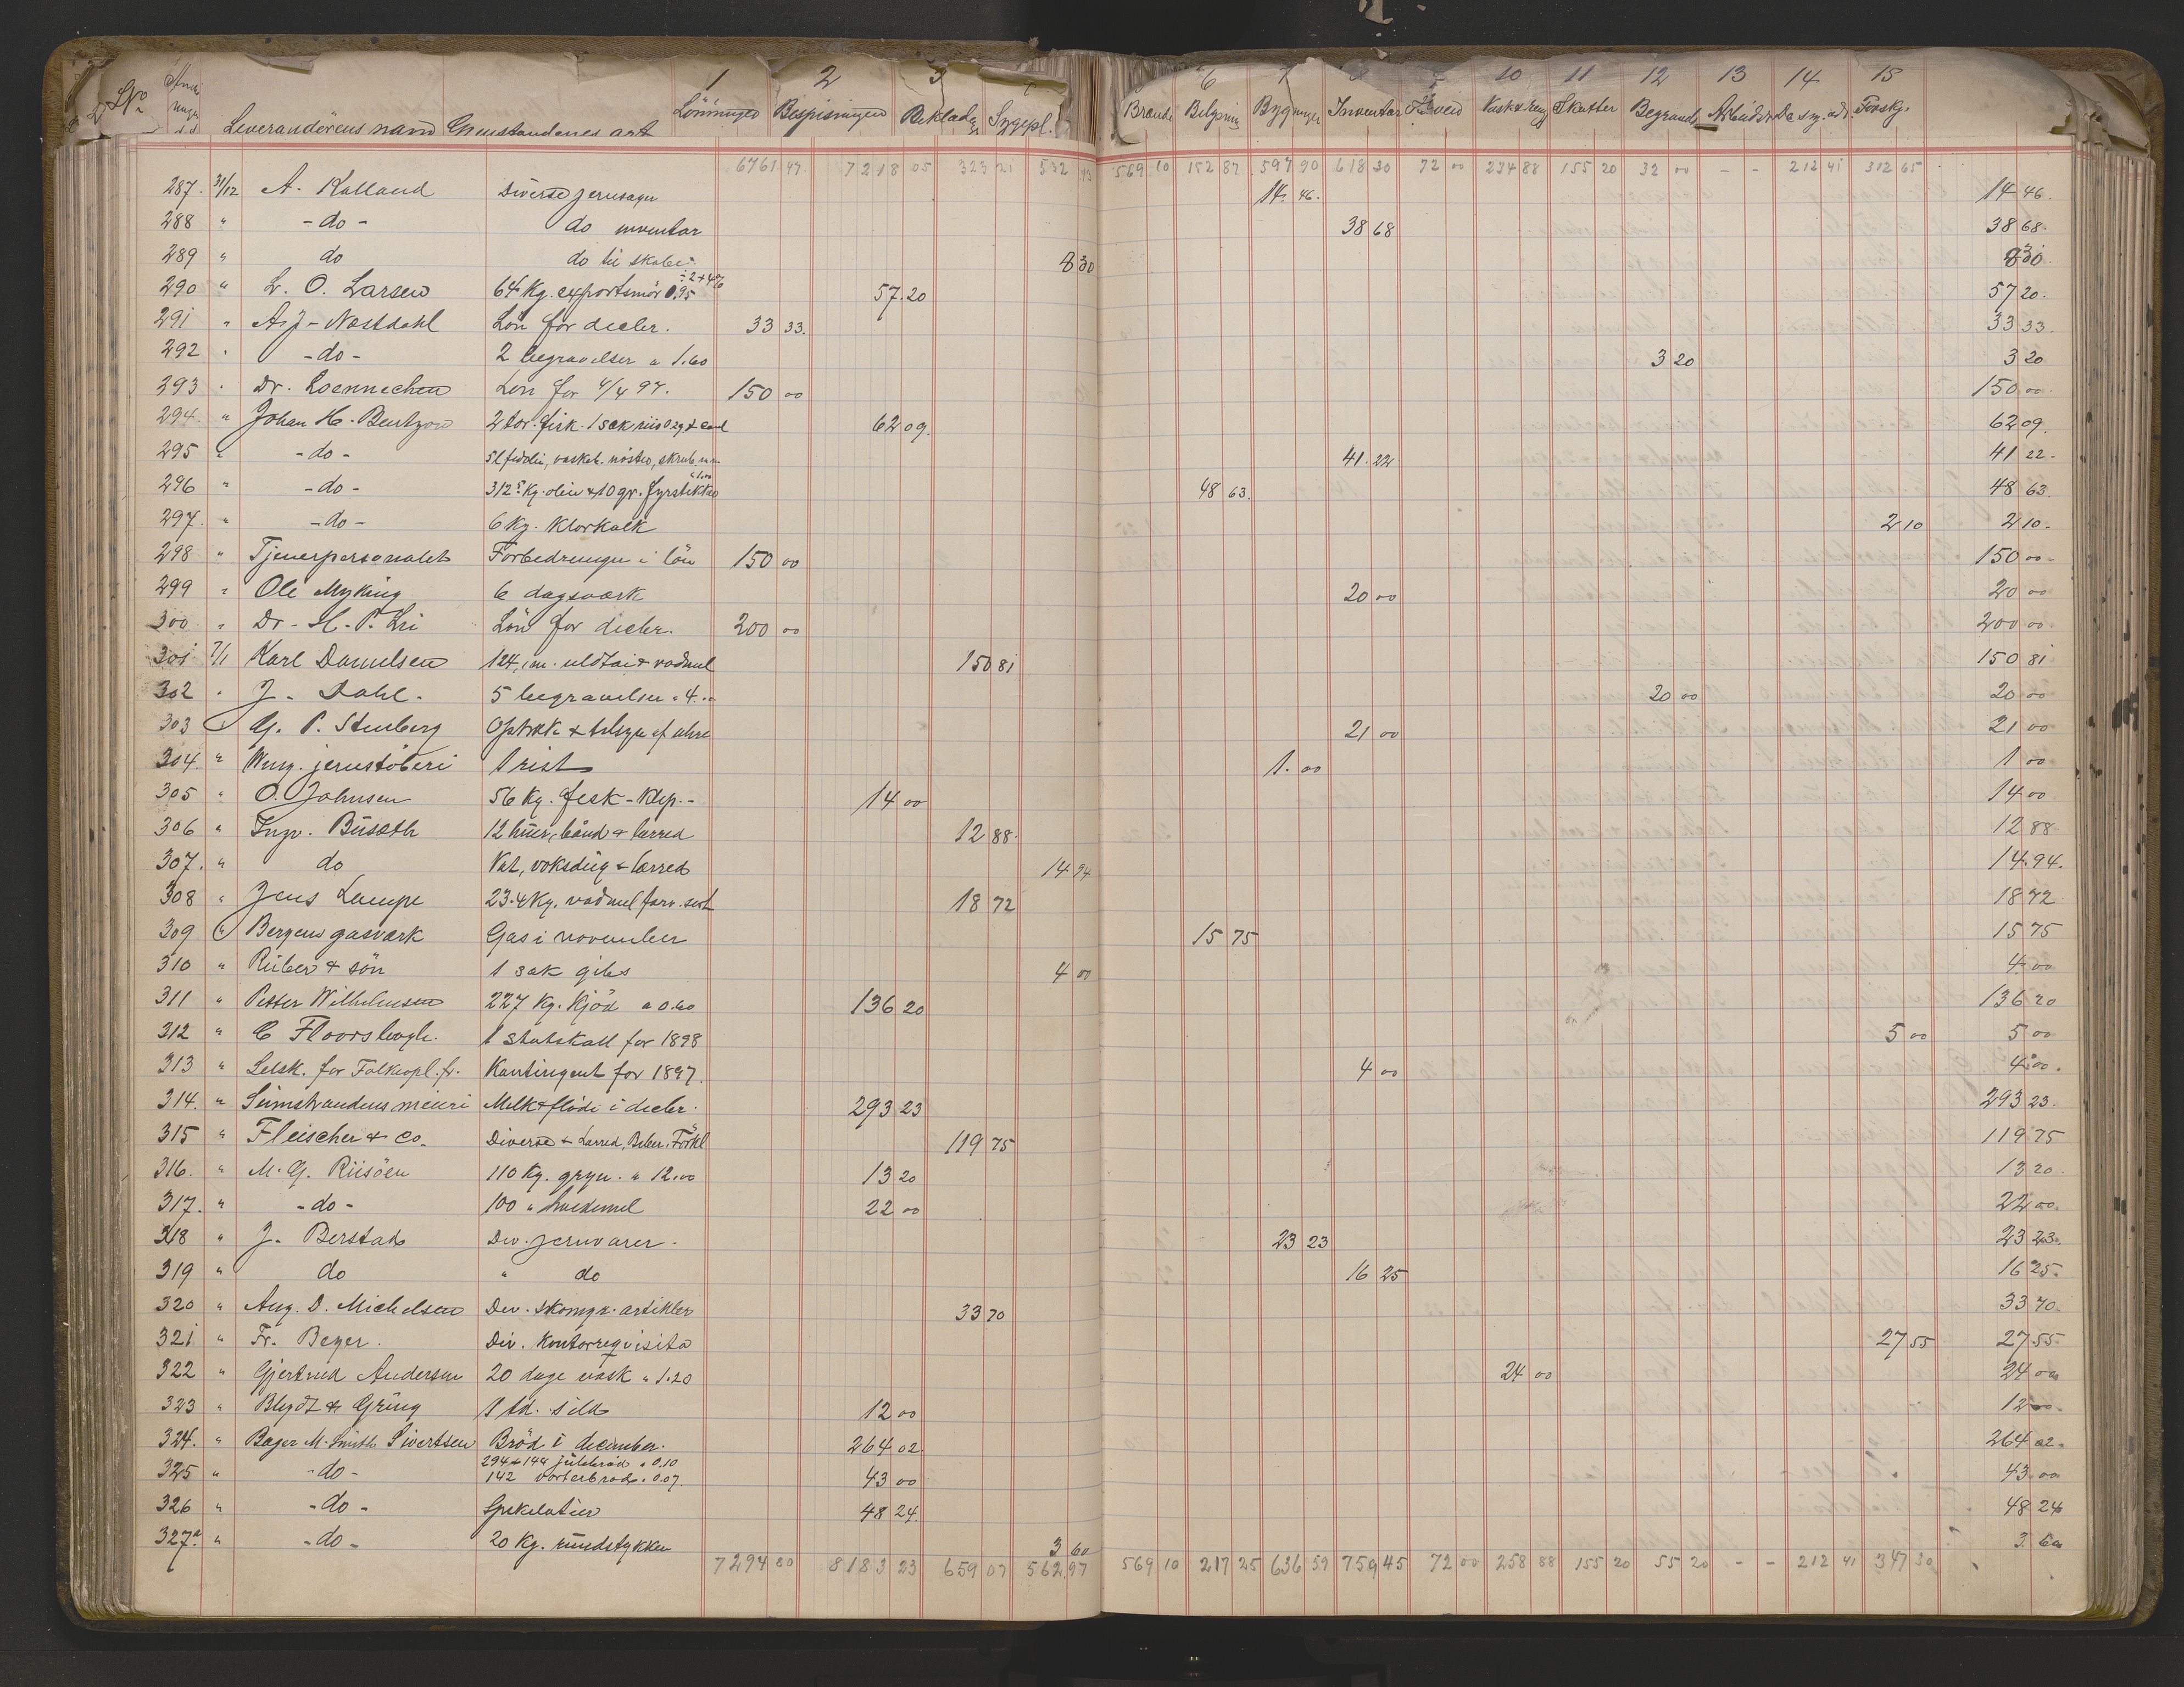 1 2 3 6 7 10 11 12 13 14 15
No Leverandörens navn Gjenstandenes art Lönninger Bespisningen Beklædn. Sygepl. Brænde Belysning Bygninger Inventar Vask & reng Skatter Begravels Arbeider Forskj.
6761 47 7218 05 323 21 532 569 10 152 87 597 90 618 30 72 00 234 88 155 20 32 00 - - 212 41 312 65
287. 31/12 A. Kalland Diverse jernsager 14. 46. 14 46.
288 " - do - do inventar 38 68 38 68.
289 " do do til skabe 8 30 8 30.
290 " L. O. Larsen 64 Kg. exportsmör 0,95 ÷ 2 + 4% 57.20 57 20.
291 " A. J. Nostdahl Lön for decbr. 33 33. 33 33.
292 " - do - 2 begravelser a 1.60 3 20 3 20
293 " Dr. Loennechen Lön for 4/4 97. 150 00 150 00.
294. " Johan H. Bentzon 2 tdr. fisk. 1 sæk riis 62 09. 62 09.
295 " - do - 41. 22 41 22.
296 " - do - 312 Kg. olie & 10 gr. fyrstikker 48 63. 48 63.
297. " - do - 6 Kg. Klorkalk 2 10 2 10.
298 " Tjenerpersonalet Forbedringer i lön 150 00 150 00.
299 " Ole Myking 6 dagsværk 20 00 20 00
300. " Dr. H. P. Lie Lön for decbr. 200 00 200 00.
301 7/1 Karl Danielsen 124, m. uldtöi & vadmel 150 81 150 81
302 " J. Dahl. 5 begravelser a 4.00 20 00 20 00
303 G. P. Stenberg Optræk & tilsyn af uhre 21 00 21 00
304. " Wing. jernstöberi 1 rist 1. 00 1 00
305 " O. Johnsen 56 Kg. fisk - Klip. - 14 00 14 00
306 " Ingv. Büseth 12 huer, bånd & lærred 12 88. 12 88.
307. " do Vat, voksdug & lærred 14 94 14. 94.
308 " Jens Lampe 23.4 Kg. vadmel farv. sort 18 72 18 72
309 " Bergens gasværk Gas i november 15 75 15 75
310 " Rieber & sön 1 sæk gibs 4 00 4 00
311 " Petter Wilhelmsen 227 Kg. Kjöd a 0.60 136 20 136 20
312 " C Floors bogh. 1 statskall for 1898 5 00 5 00
313 " Selsk. for Folkeopl. fr. Kontingent for 1897. 4 00 4 00.
314. " Seimstrandens meieri Melk & flöde i decbr. 293 23 293 23.
315 " Fleischer & Co. Diverse & Lærred, 119 75 119 75
316. " M. G. Riisöen 110 Kg. gryn. a 12.00 13 20 13 20.
317. " - do - 100 " hvedemel 22 00 22 00.
318 " J. Berstad Div. jernvarer - 23 23 23 23.
319 " do " do 16 25 16 25.
320 " Aug. D. Michelsen Div. skomgr. artikler 33 70 33 70.
321 " Fr. Beyer. Div. Kontorreqvisita 27 55 27 55.
322 " Gjertrud Andersen 20 dage vask a 1.20 24 00 24 00
323 " Blydt & Grüng 1 td. sild 12 00 12 00.
324. " Bager M. Smith Sivertsen Bröd i december. 264 02 264 02.
325 " - do - 294 & 144 julebröd a 0.10 142 vörterbröd a 0.07. 43 00 43 00
326 " - do - Spekulatier 48 24. 48 24
327a. " - do - 20 Kg. rundstykker 3 60 3 60
7294 80 8183 23 659 07 562 97 569 10 217 25 636 59 759 45 72 00 258 88 155 20 55 20 - - 212 41 347 30